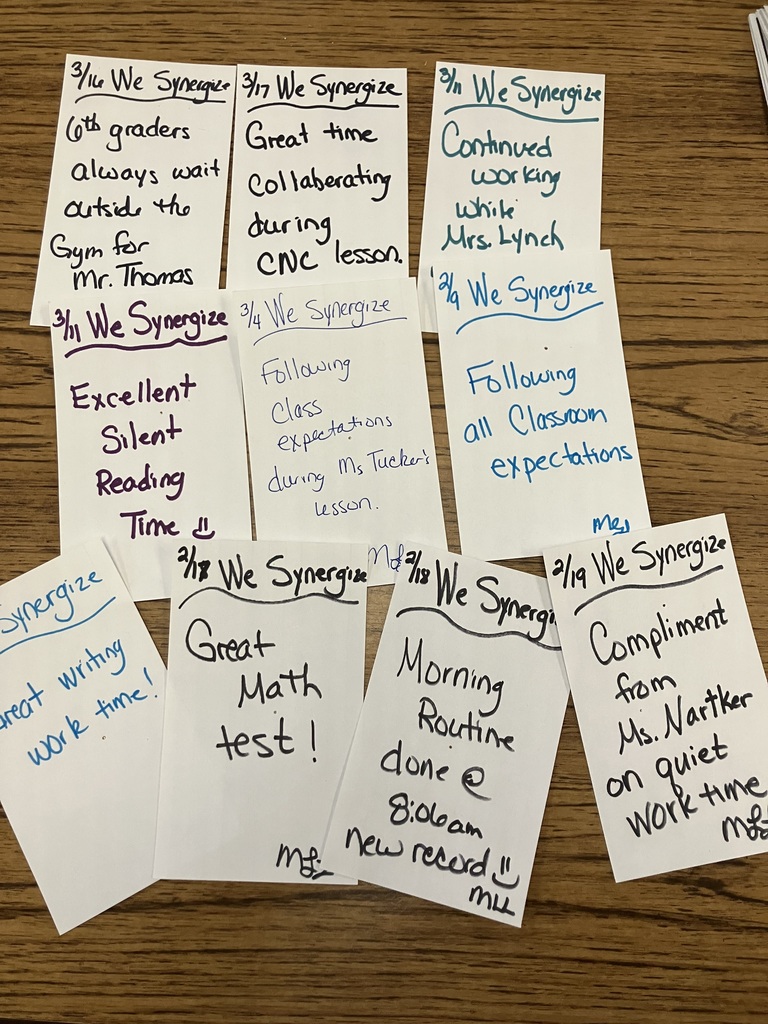 3/16 We Synergize
6th graders
always wait
outside the
Gym for
Mr. Thomas
3/17 We Synergize
Great time
Collaberating
during
CNC lesson.
3/11 We Synergize
Continued
working
while
Mrs. Lynch
3/11 We Synergize
Excellent
Silent
Reading
Time
3/4 We Synergize
Following
Class
expectations
during Ms Tucker's
lesson.
2/9 We Synergize
Following
all Classroom
expectations
Synergize
Great writing
work time!
2/18 We Synergize
Great
Math
test!
2/18 We Synergi
Morning
Routine
done @
8:06am
new record
MLL
2/19 We Synergize
Compliment
from
Ms. Nartker
on quiet
work time